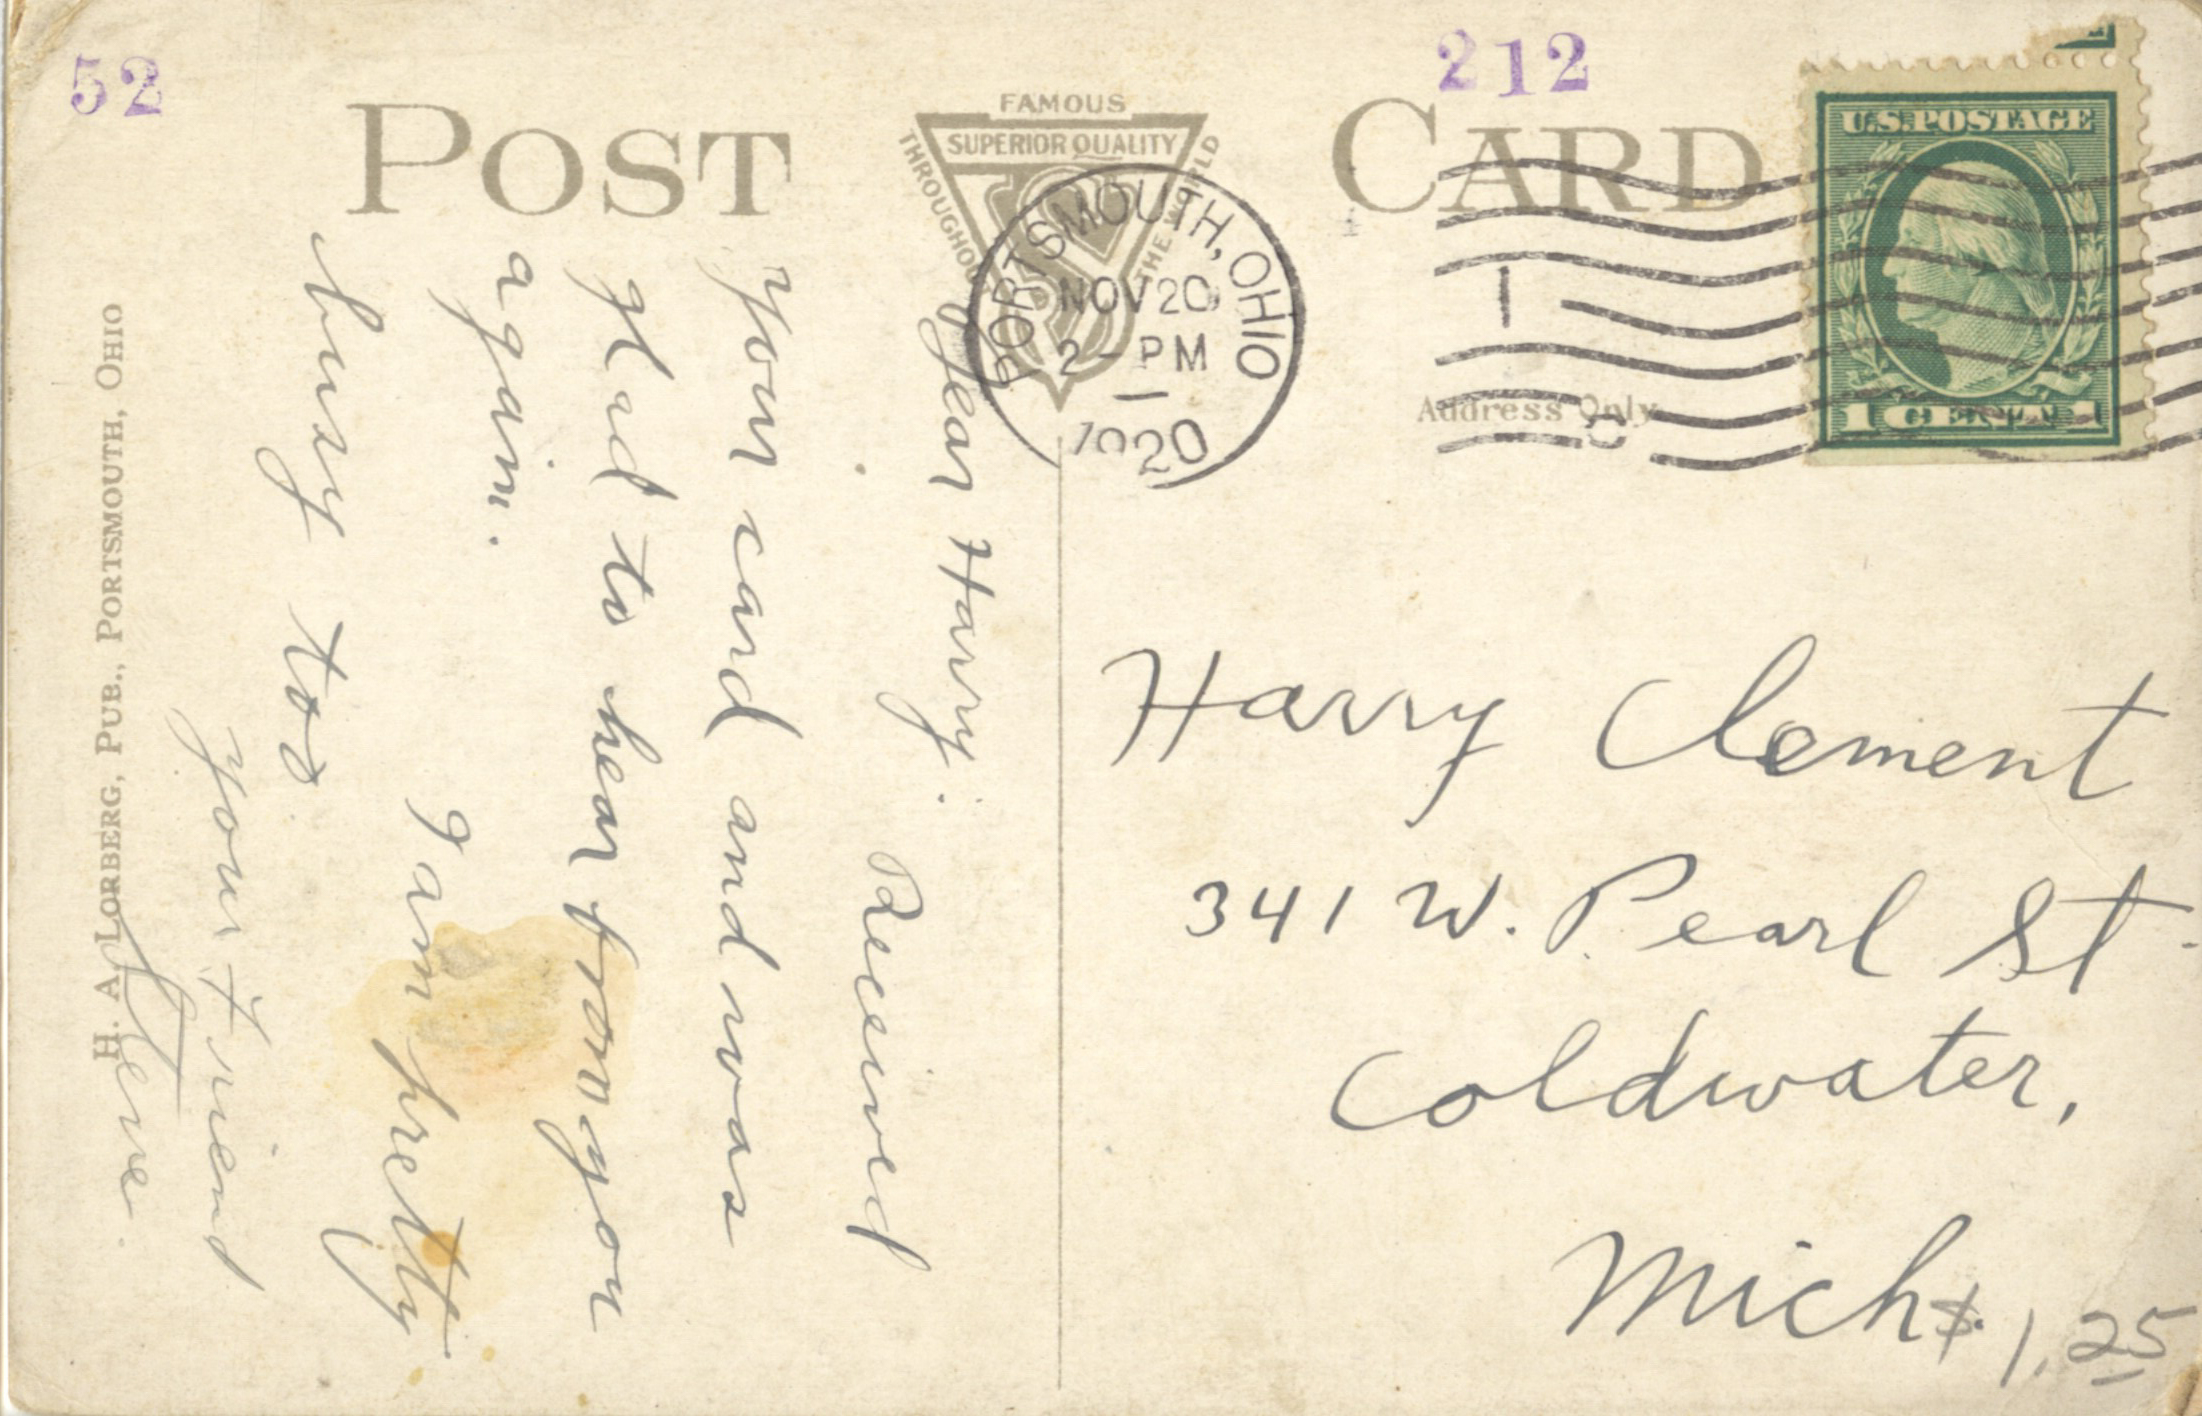 52
212
POST CARD
FAMOUS
SUPERIOR QUALITY
THROUGHOUT THE WORLD
PORTSMOUTH, OHIO
NOV 20
2 - PM
1920
U.S. POSTAGE
1 CENT 1
Address Only
Dear Harry. Received
your card and was
glad to hear from you
again.
I am pretty
busy too
your friend
H. A. LORBERG, PUB., PORTSMOUTH, OHIO
Harry Clement
341 W. Pearl St.
Coldwater,
Mich.
$1.25